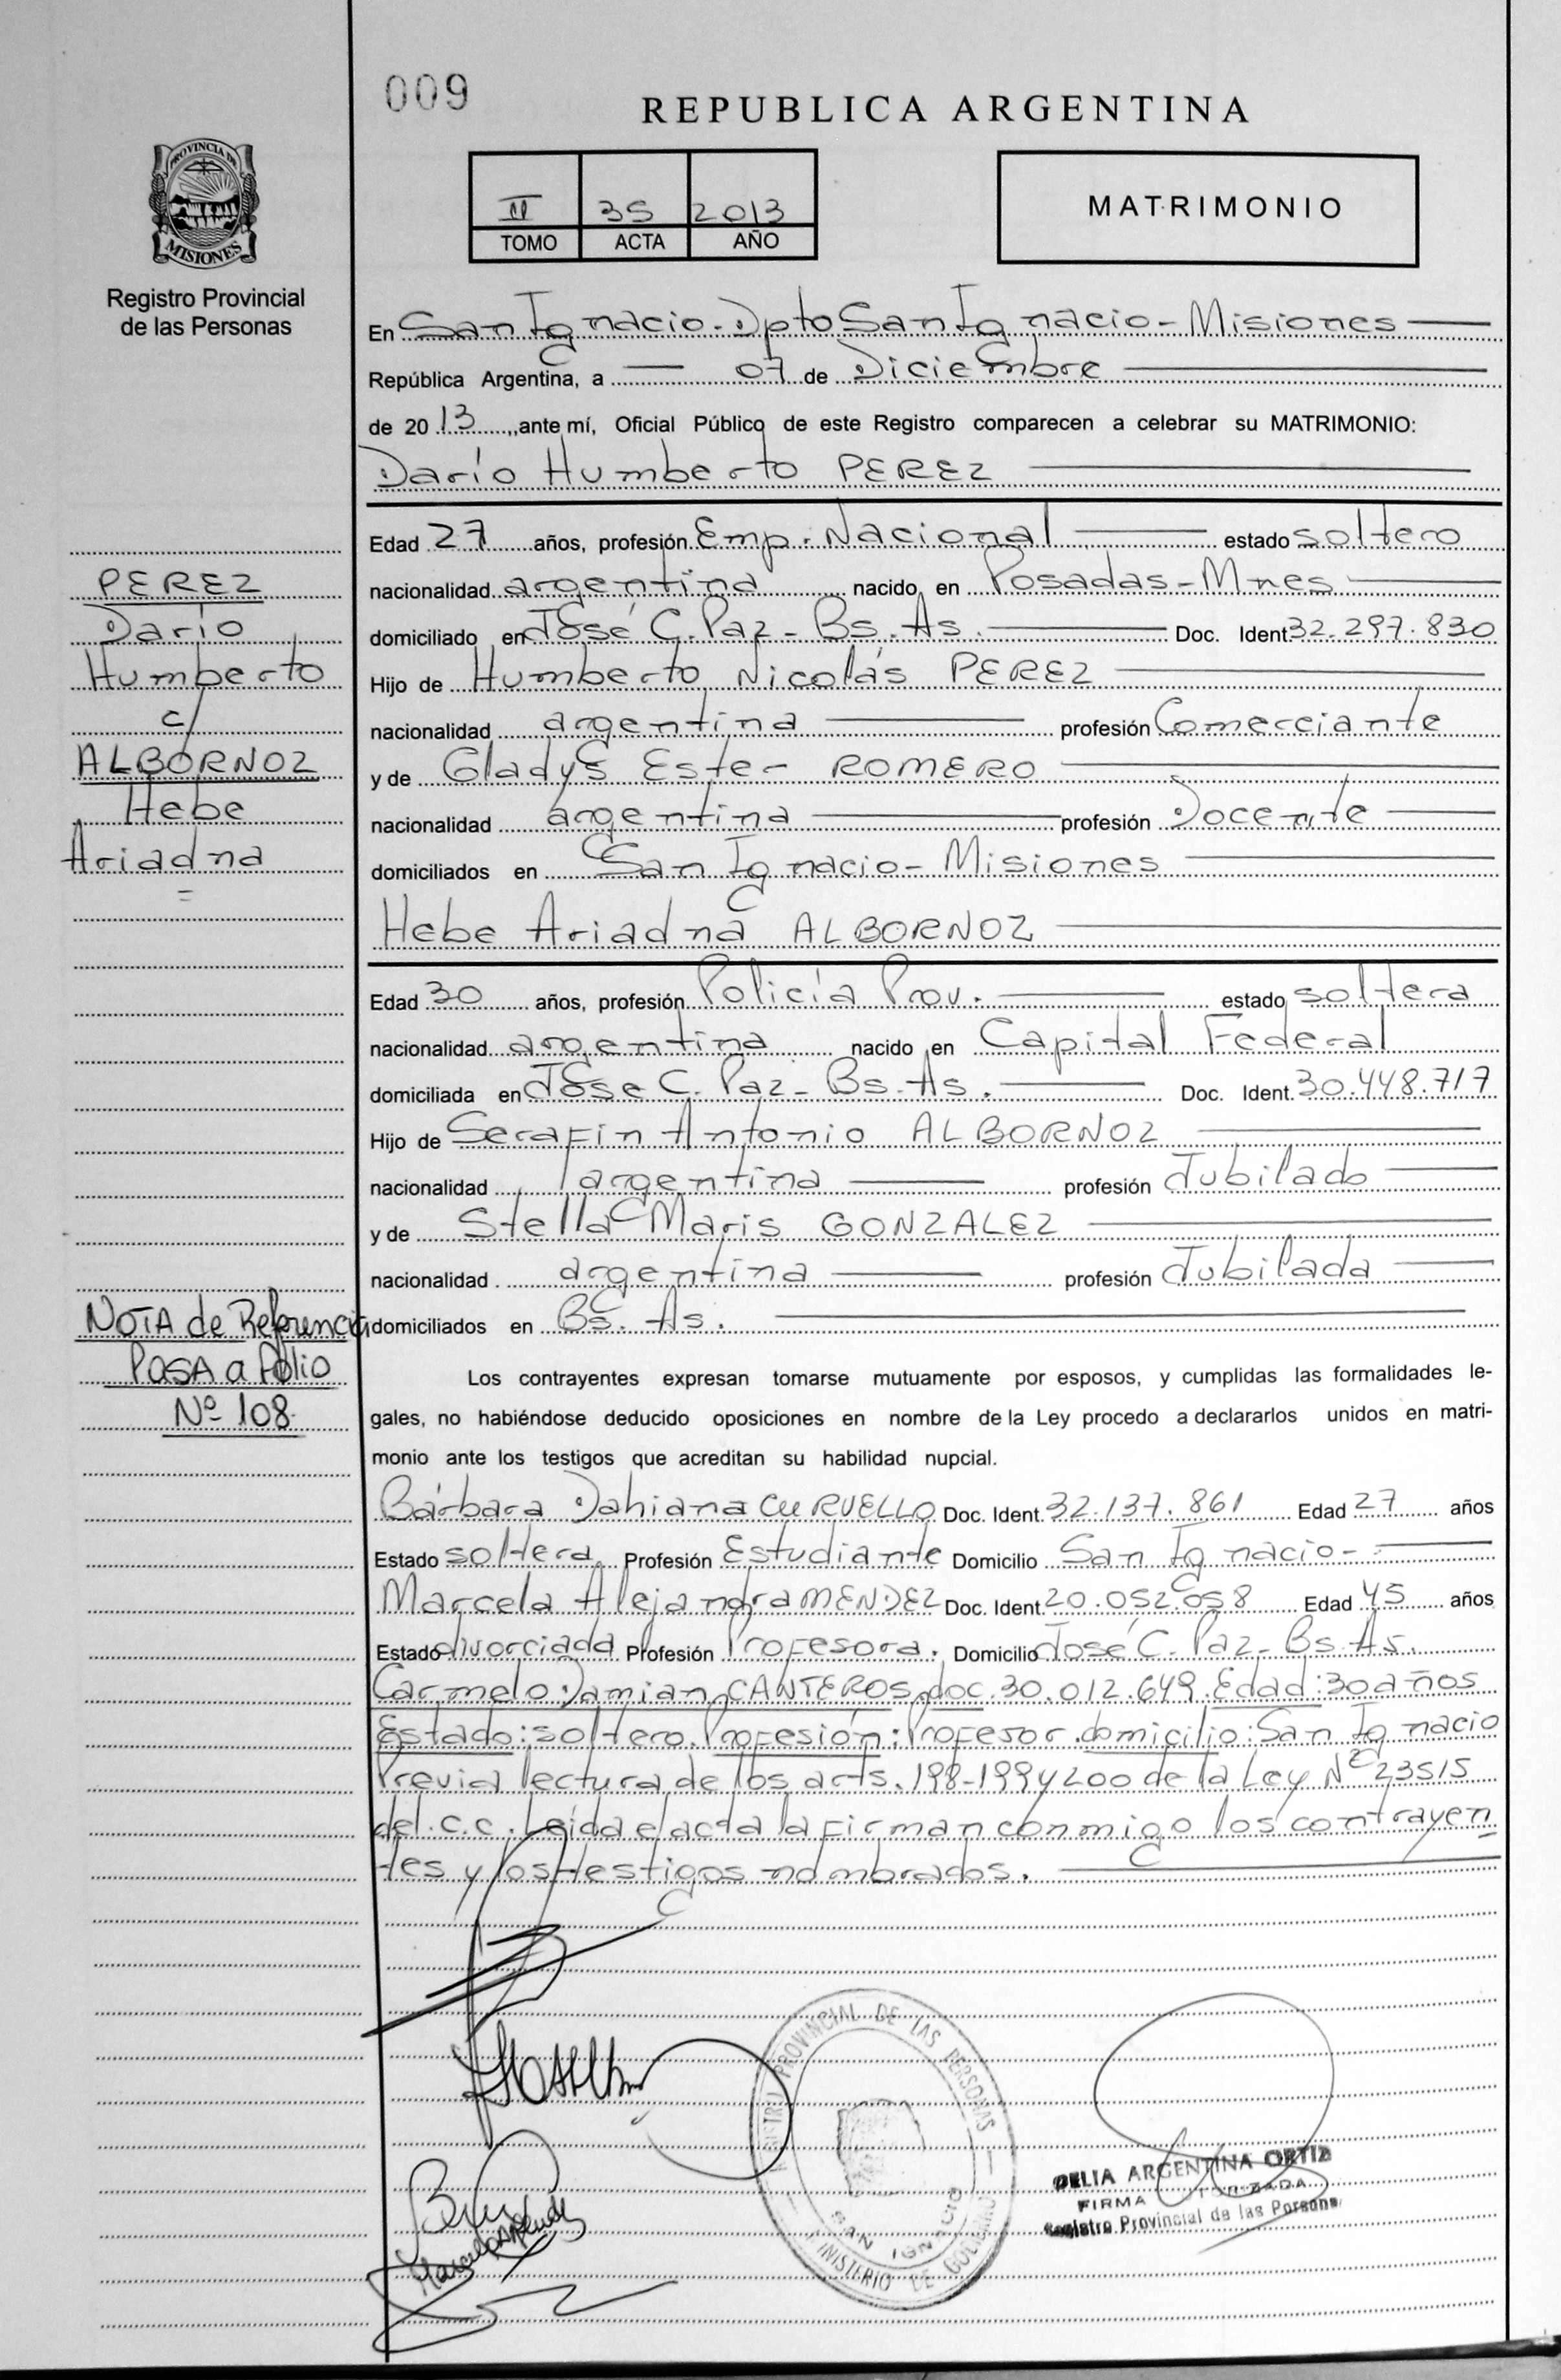 009
REPUBLICA ARGENTINA
PROVINCIA DE
MISIONES
Registro Provincial
de las Personas
II 35 2013
TOMO ACTA AÑO
MATRIMONIO
En San Ignacio - Dpto San Ignacio - Misiones
República Argentina, a 07 de Diciembre
de 2013, ante mí, Oficial Público de este Registro comparecen a celebrar su MATRIMONIO:
Darío Humberto PEREZ
Edad 27 años, profesión Emp. Nacional estado soltero
nacionalidad argentina nacido en Posadas - Mnes
domiciliado en José C. Paz - Bs. As. Doc. Ident 32.297.830
Hijo de Humberto Nicolás PEREZ
nacionalidad argentina profesión Comerciante
y de Gladys Ester ROMERO
nacionalidad argentina profesión Docente
domiciliados en San Ignacio - Misiones
Hebe Ariadna ALBORNOZ
Edad 30 años, profesión Policía Prov. estado soltera
nacionalidad argentina nacido en Capital Federal
domiciliada en José C. Paz - Bs. As. Doc. Ident. 30.448.717
Hijo de Serafin Antonio ALBORNOZ
nacionalidad argentina profesión Jubilado
y de Stella Maris GONZALEZ
nacionalidad argentina profesión Jubilada
domiciliados en Bs. As.
PEREZ
Darío
Humberto
c/
ALBORNOZ
Hebe
Ariadna
=
NOTA de Referencia
PASA a folio
Nº 108
Los contrayentes expresan tomarse mutuamente por esposos, y cumplidas las formalidades le-
gales, no habiéndose deducido oposiciones en nombre de la Ley procedo a declararlos unidos en matri-
monio ante los testigos que acreditan su habilidad nupcial.
Bárbara Dahiana CURVELLO Doc. Ident. 32.137.861 Edad 27 años
Estado soltera Profesión Estudiante Domicilio San Ignacio -
Marcela Alejandra MENDEZ Doc. Ident. 20.052.058 Edad 45 años
Estado divorciada Profesión Profesora. Domicilio José C. Paz - Bs. As.
Carmelo Damian CANTEROS, doc. 30.012.649. Edad: 30 años
Estado: soltero. Profesión: Profesor. domicilio: San Ignacio
Previa lectura de los arts. 198-199 y 200 de la Ley Nº 23515
del C.C. Leída el acta la firman conmigo los contrayen
tes y los testigos nombrados.
REGISTRO PROVINCIAL DE LAS PERSONAS
SAN IGNACIO
MINISTERIO DE GOBIERNO
DELIA ARGENTINA ORTIZ
FIRMA AUTORIZADA
Registro Provincial de las Personas